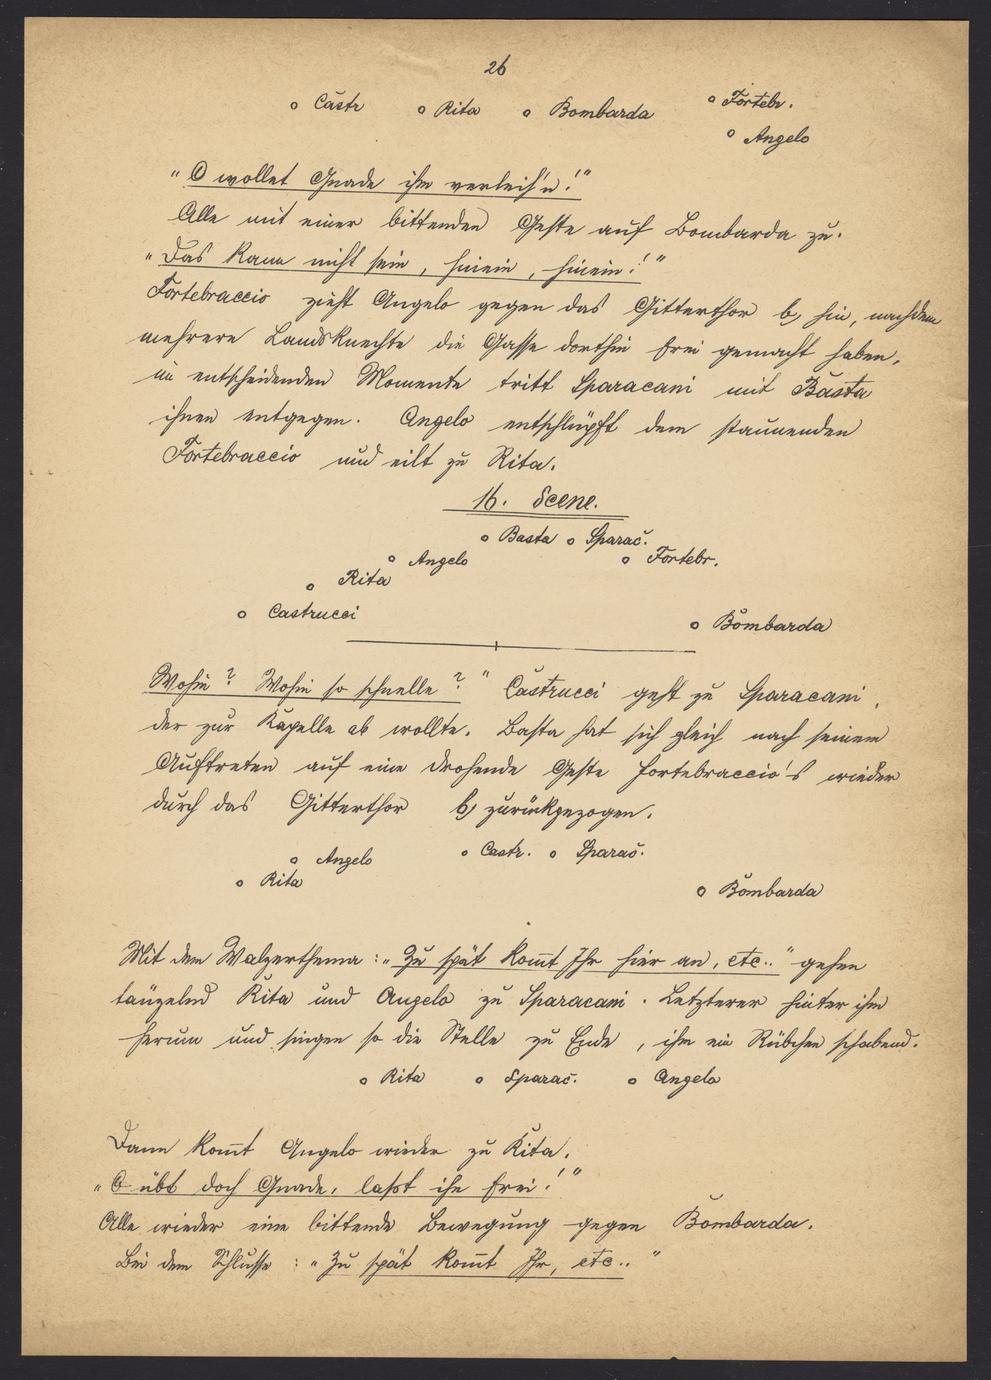 26
o Castr o Rita o Bombarda o Fortebr.
o Angelo
"O wollet Gnade ihm verleih'n!"
Alle mit einer bittenden Geste auf Bombarda zu.
"Das kann nicht sein, hinein, hinein!"
Fortebraccio zieht Angelo gegen das Gitterthor b, hin, nachdem
mehrere Landsknechte die Gasse dorthin frei gemacht haben,
im entscheidenden Momente tritt Sparacani mit Basta
ihnen entgegen. Angelo entschlüpft dem staunenden
Fortebraccio und eilt zu Rita.
16. Scene.
o Basta o Sparac.
o Angelo o Fortebr.
o Rita
o Castrucci o Bombarda
Wohin? Wohin so schnelle?" Castrucci geht zu Sparacani,
der zur Kapelle ab wollte. Basta hat sich gleich nach seinem
Auftreten auf eine drohende Geste Fortebraccio's wieder
durch das Gitterthor b, zurückgezogen.
o Angelo o Castr. o Sparac.
o Rita o Bombarda
Mit dem Walzerthema: "Zu spät kom̄t Ihr hier an, etc.." gehen
tänzelnd Rita und Angelo zu Sparacani. Letzterer hinter ihm
herum und singen so die Stelle zu Ende, ihm ein Rübchen schabend.
o Rita o Sparac. o Angelo
Dann kom̄t Angelo wieder zu Rita.
"O übt doch Gnade, laßt ihn frei!"
Alle wieder eine bittende Bewegung gegen Bombarda.
Bei dem Schlusse: "Zu spät kom̄t Ihr, etc.."